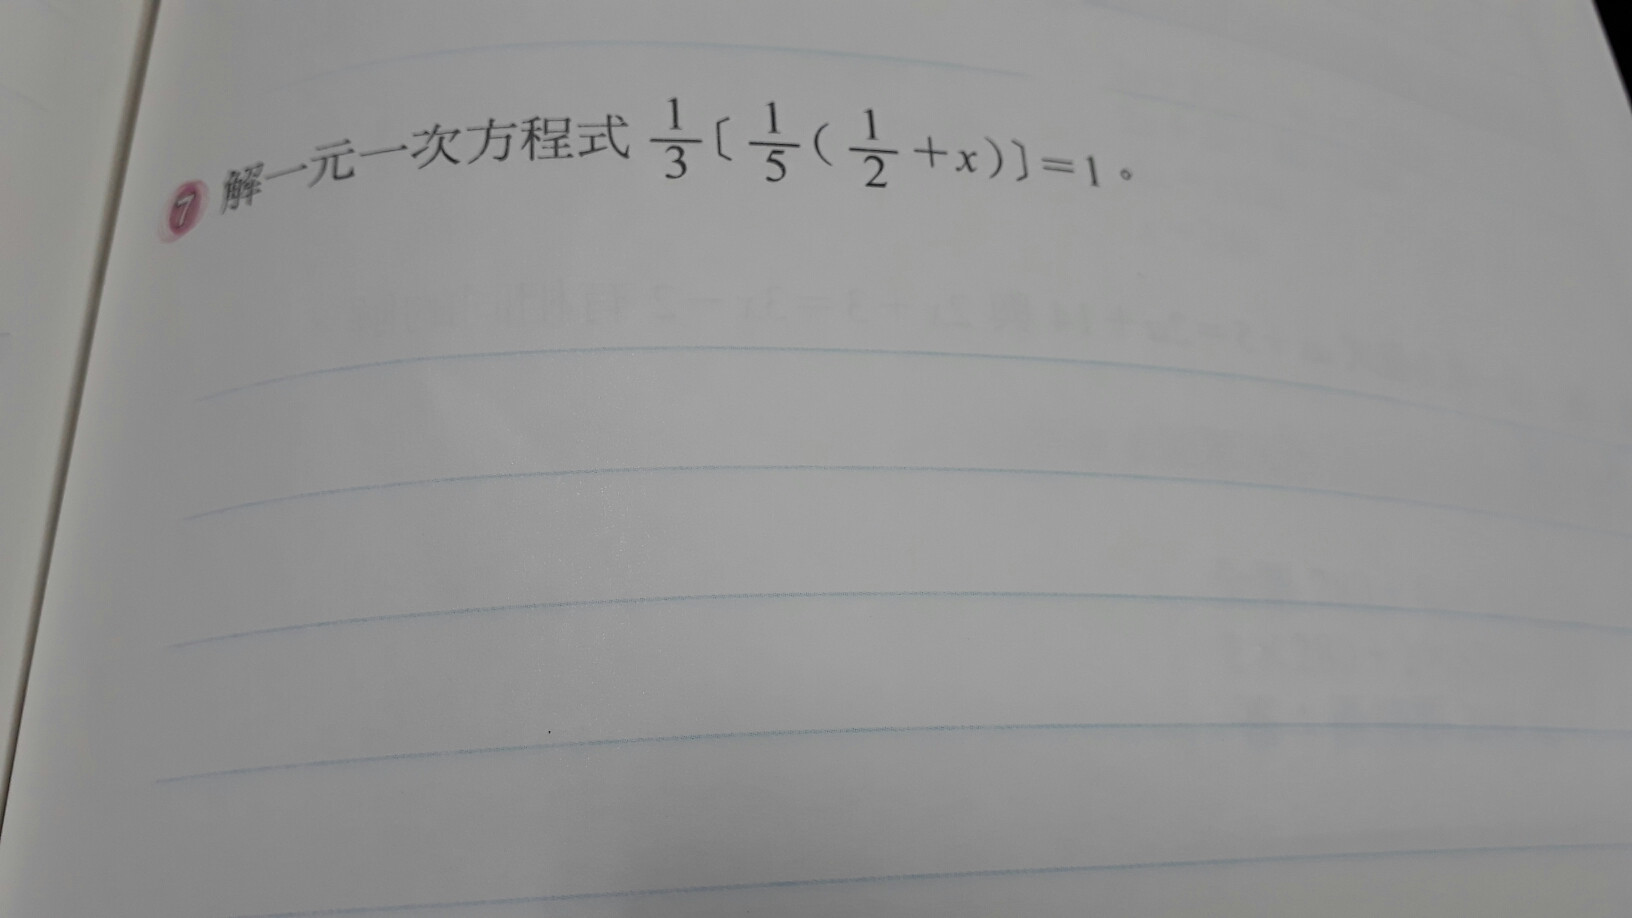 7 解一元一次方程式 1/3〔1/5(1/2+x)〕=1。